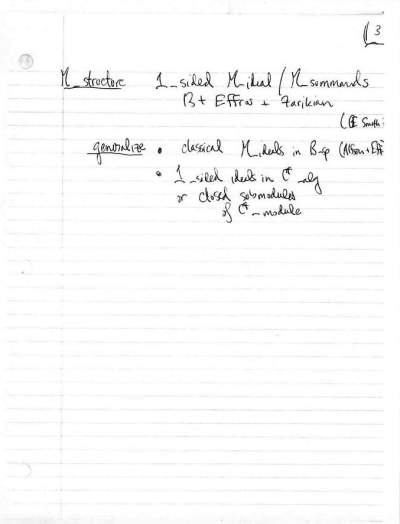 3
M_structure 1_sided M_ideal / M_summands
B + Effros + Zarikian
(& Smith
generalize • classical M_ideals in B-sp (Alfsen + Eff
• 1_sided ideals in C*_alg
or closed submodules
of C*_module